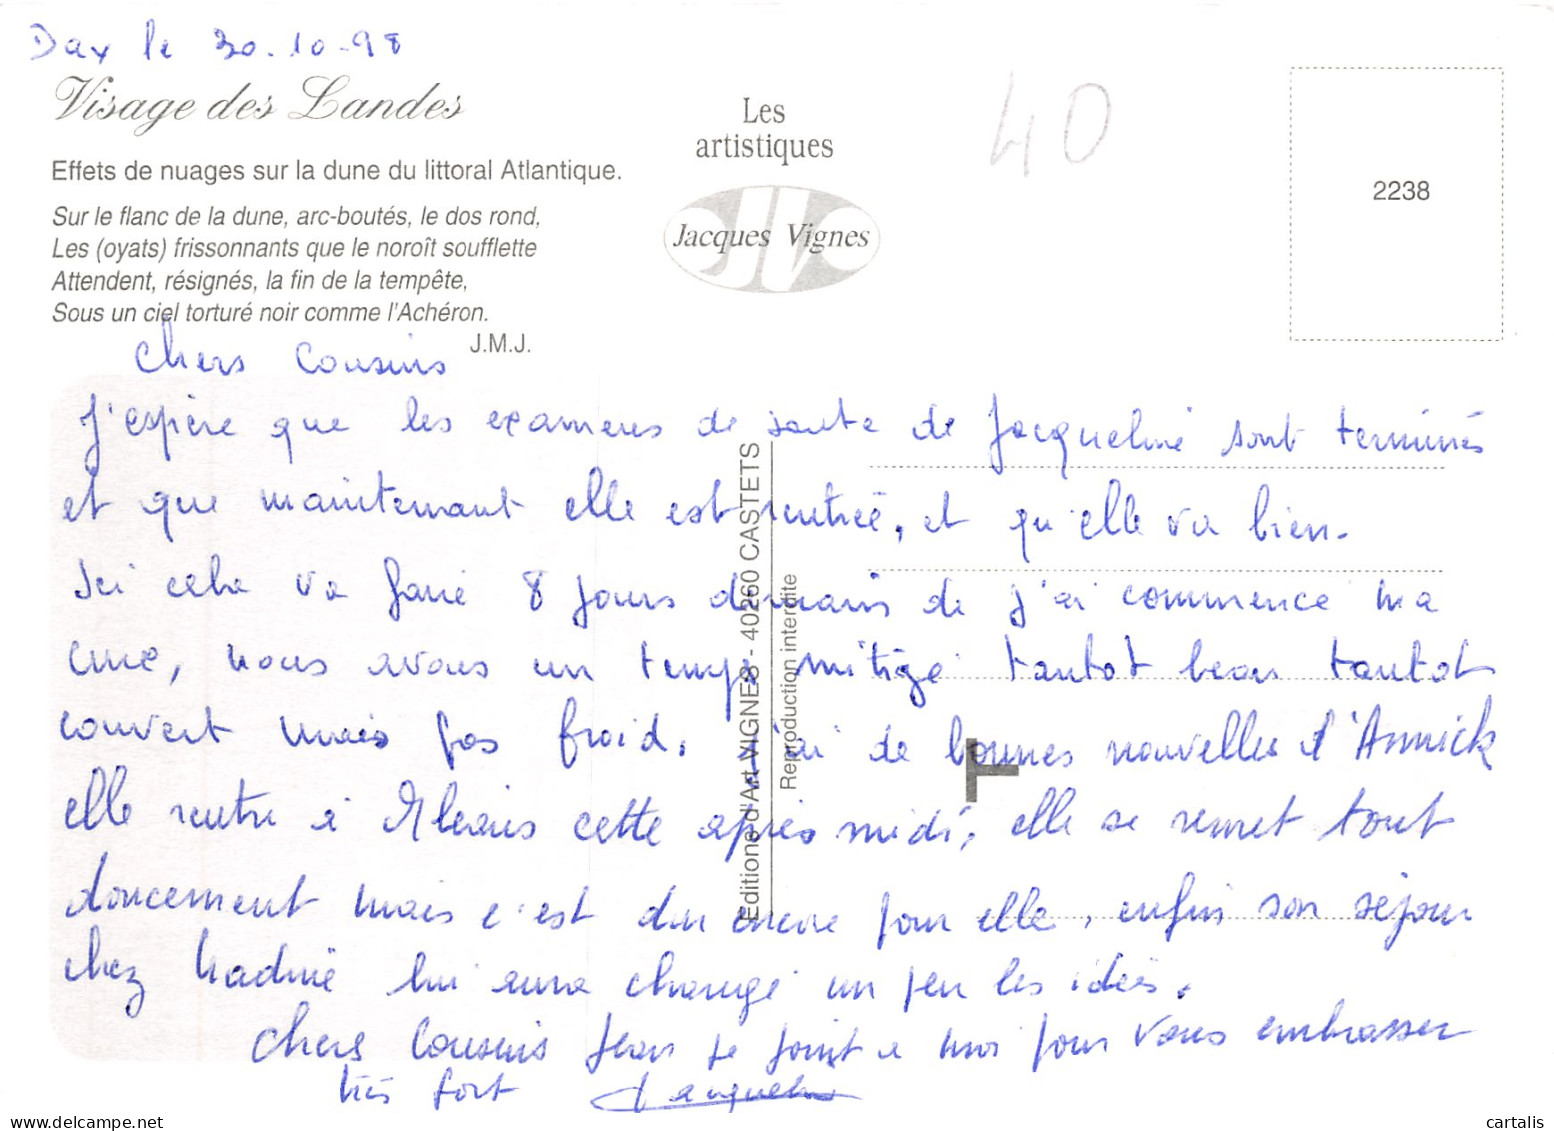 Dax le 30.10.98
Visage des Landes
Effets de nuages sur la dune du littoral Atlantique.
Sur le flanc de la dune, arc-boutés, le dos rond,
Les (oyats) frissonnants que le noroît soufflette
Attendent, résignés, la fin de la tempête,
Sous un ciel torturé noir comme l'Achéron.
J.M.J.
Les
artistiques
Jacques Vignes
40
2238
Editions d'Art VIGNES - 40260 CASTETS
Reproduction interdite
Chers Cousins
J'espère que les examens de santé de Jacqueline sont terminés
et que maintenant elle est rentrée, et qu'elle va bien.
Ici cela va faire 8 jours demain de j'ai commencé ma
cure, nous avons un temps mitigé tantot beau tantot
couvert mais pas froid. j'ai de bonnes nouvelles d'Annick
elle rentre à cette après midi, elle se remet tout
doucement mais c'est dur encore pour elle, enfin son séjour
chez Nadine lui aura changé un peu les idées.
Chers Cousins Jean se joint a moi pour vous embrasser
très fort Jacqueline
cartalis